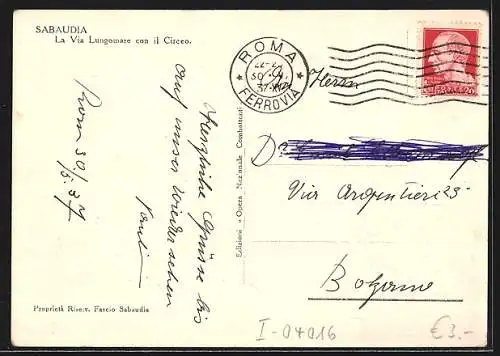 SABAUDIA
La Via Lungomare con il Circeo.
ROMA
FERROVIA
Herrn
Via Argentieri 25
Bolzano
Rom 30/3.37
Herzliche Grüsse bis
auf unser Wiedersehen
Edizioni « Opera Nazionale Combattenti »
Proprietà Riserv. Fascio Sabaudia
I-04016
€3.-